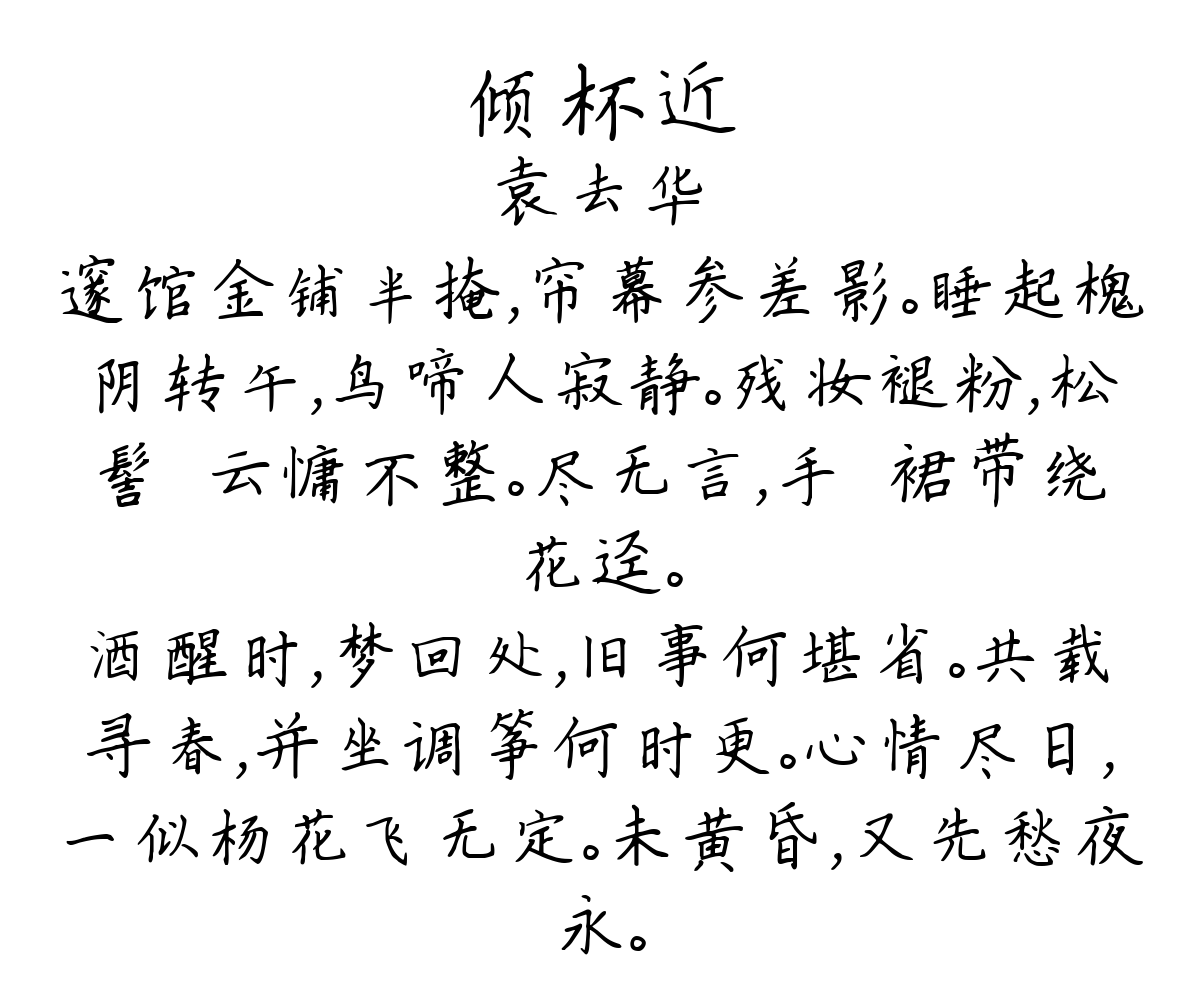 倾杯近
袁去华
邃馆金铺半掩,帘幕参差影。睡起槐
阴转午,鸟啼人寂静。残妆褪粉,松
髻 云慵不整。尽无言,手 裙带绕
花迳。
酒醒时,梦回处,旧事何堪省。共载
寻春,并坐调筝何时更。心情尽日,
一似杨花飞无定。未黄昏,又先愁夜
永。